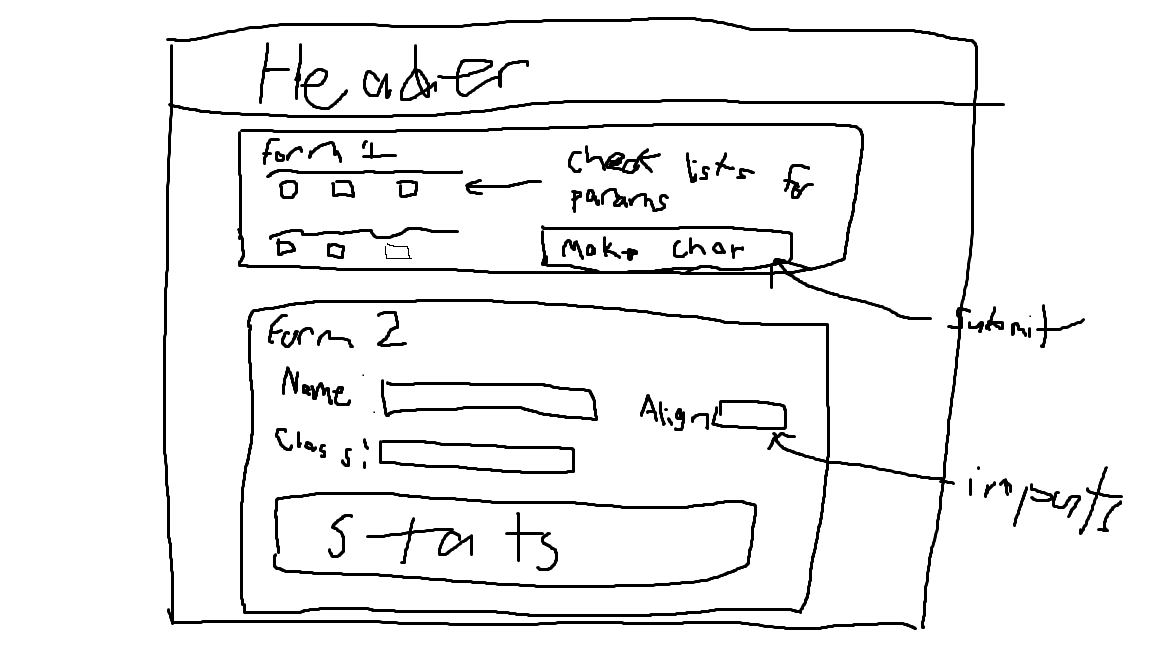 Header
Form 1
check lists for
params
Make char
Submit
Form 2
Name:
Align
Class:
imports
Stats